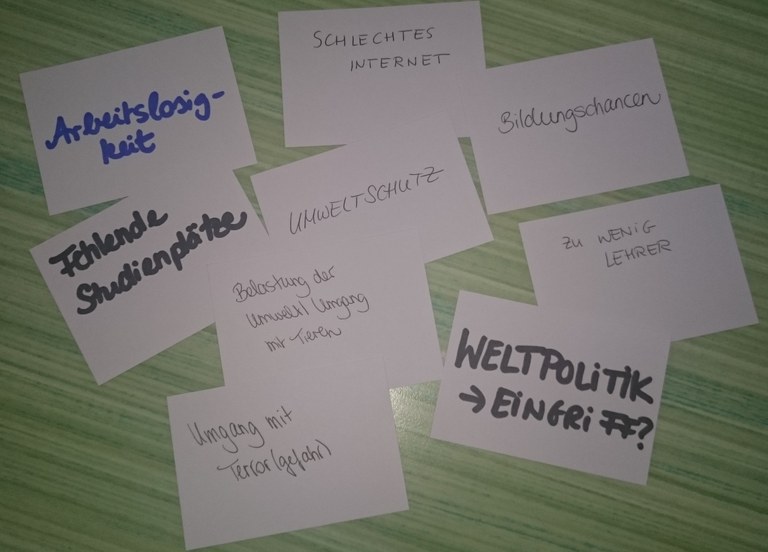 SCHLECHTES
INTERNET
Arbeitslosig-
keit
Bildungschancen
UMWELTSCHUTZ
Fehlende
Studienplätze
ZU WENIG
LEHRER
Belastung der
Umwelt/Umgang
mit Tieren
WELTPOLITIK
→ EINGRIFF?
Umgang mit
Terror(gefahr)